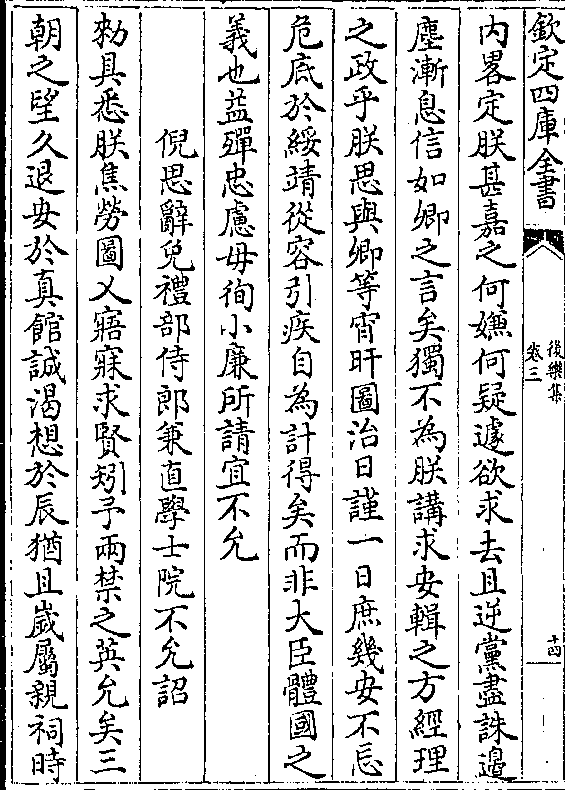 欽定四庫全書
後樂集
卷三
十四
內畧定朕甚嘉之何嫌何疑遽欲求去且逆黨盡誅邊
塵漸息信如卿之言矣獨不為朕講求安輯之方經理
之政乎朕思與卿等宵旰圖治日謹一日庶幾安不忘
危底於綏靖從容引疾自為計得矣而非大臣體國之
義也益殫忠慮毋徇小廉所請宜不允
倪思辭免禮部侍郎兼直學士院不允詔
勑具悉朕焦勞圖乂寤寐求賢矧予兩禁之英允矣三
朝之望久退安於真館誠渴想於辰猶且嵗屬親祠時